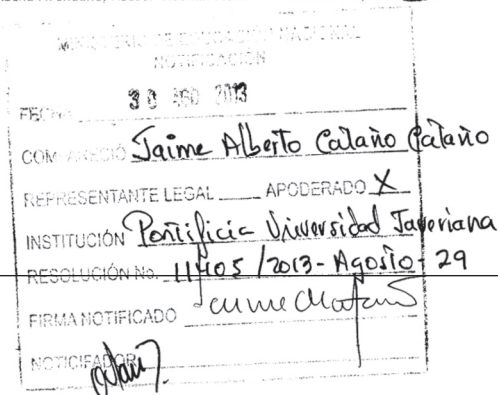 MINISTERIO DE EDUCACIÓN NACIONAL
NOTIFICACIÓN
FECHA 30 AGO 2013
COMPARECIÓ Jaime Alberto Cataño Cataño
REPRESENTANTE LEGAL ____ APODERADO X
INSTITUCIÓN Pontificia Universidad Javeriana
RESOLUCIÓN No. 11405 /2013 - Agosto - 29
FIRMA NOTIFICADO
NOTICIFADOR